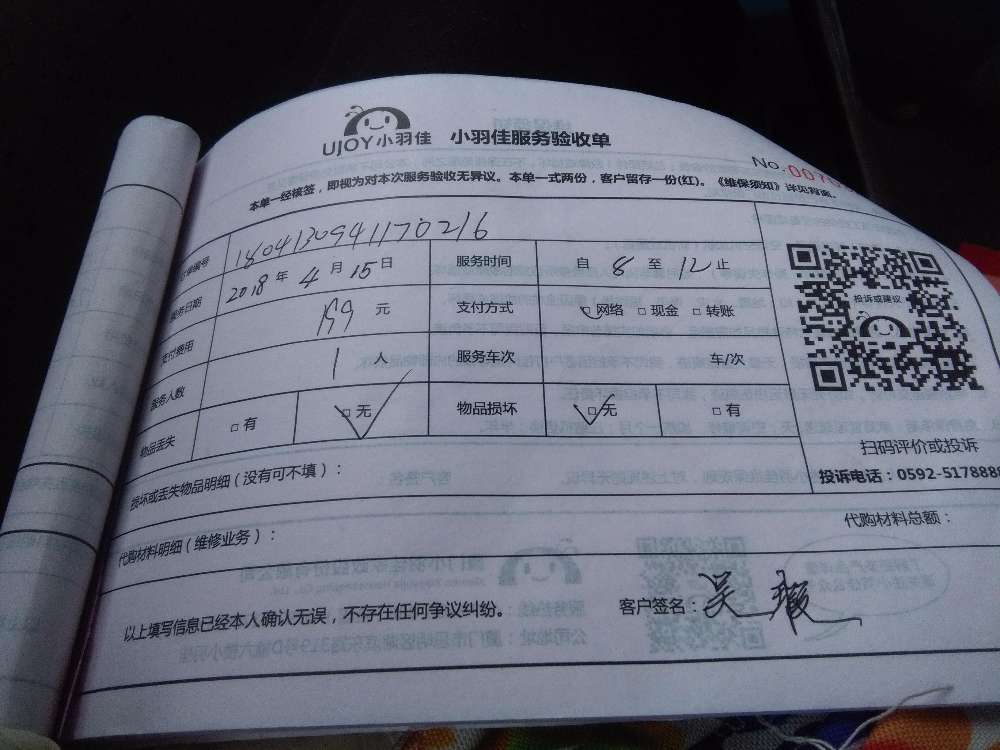 UJOY小羽佳 小羽佳服务验收单
No.
本单一经核签，即视为对本次服务验收无异议。本单一式两份，客户留存一份(红)。《维保须知》详见背面。
订单编号 1804130941170216
服务日期 2018年4月15日 服务时间 自8至12止
支付费用 199元 支付方式 ☑网络 □现金 □转账
服务人数 1人 服务车次 车/次
物品丢失 □有 ☑无 物品损坏 ☑无 □有
投诉或建议
扫码评价或投诉
投诉电话：0592-5178888
损坏或丢失物品明细（没有可不填）：
代购材料明细（维修业务）： 代购材料总额：
以上填写信息已经本人确认无误，不存在任何争议纠纷。 客户签名：吴霞